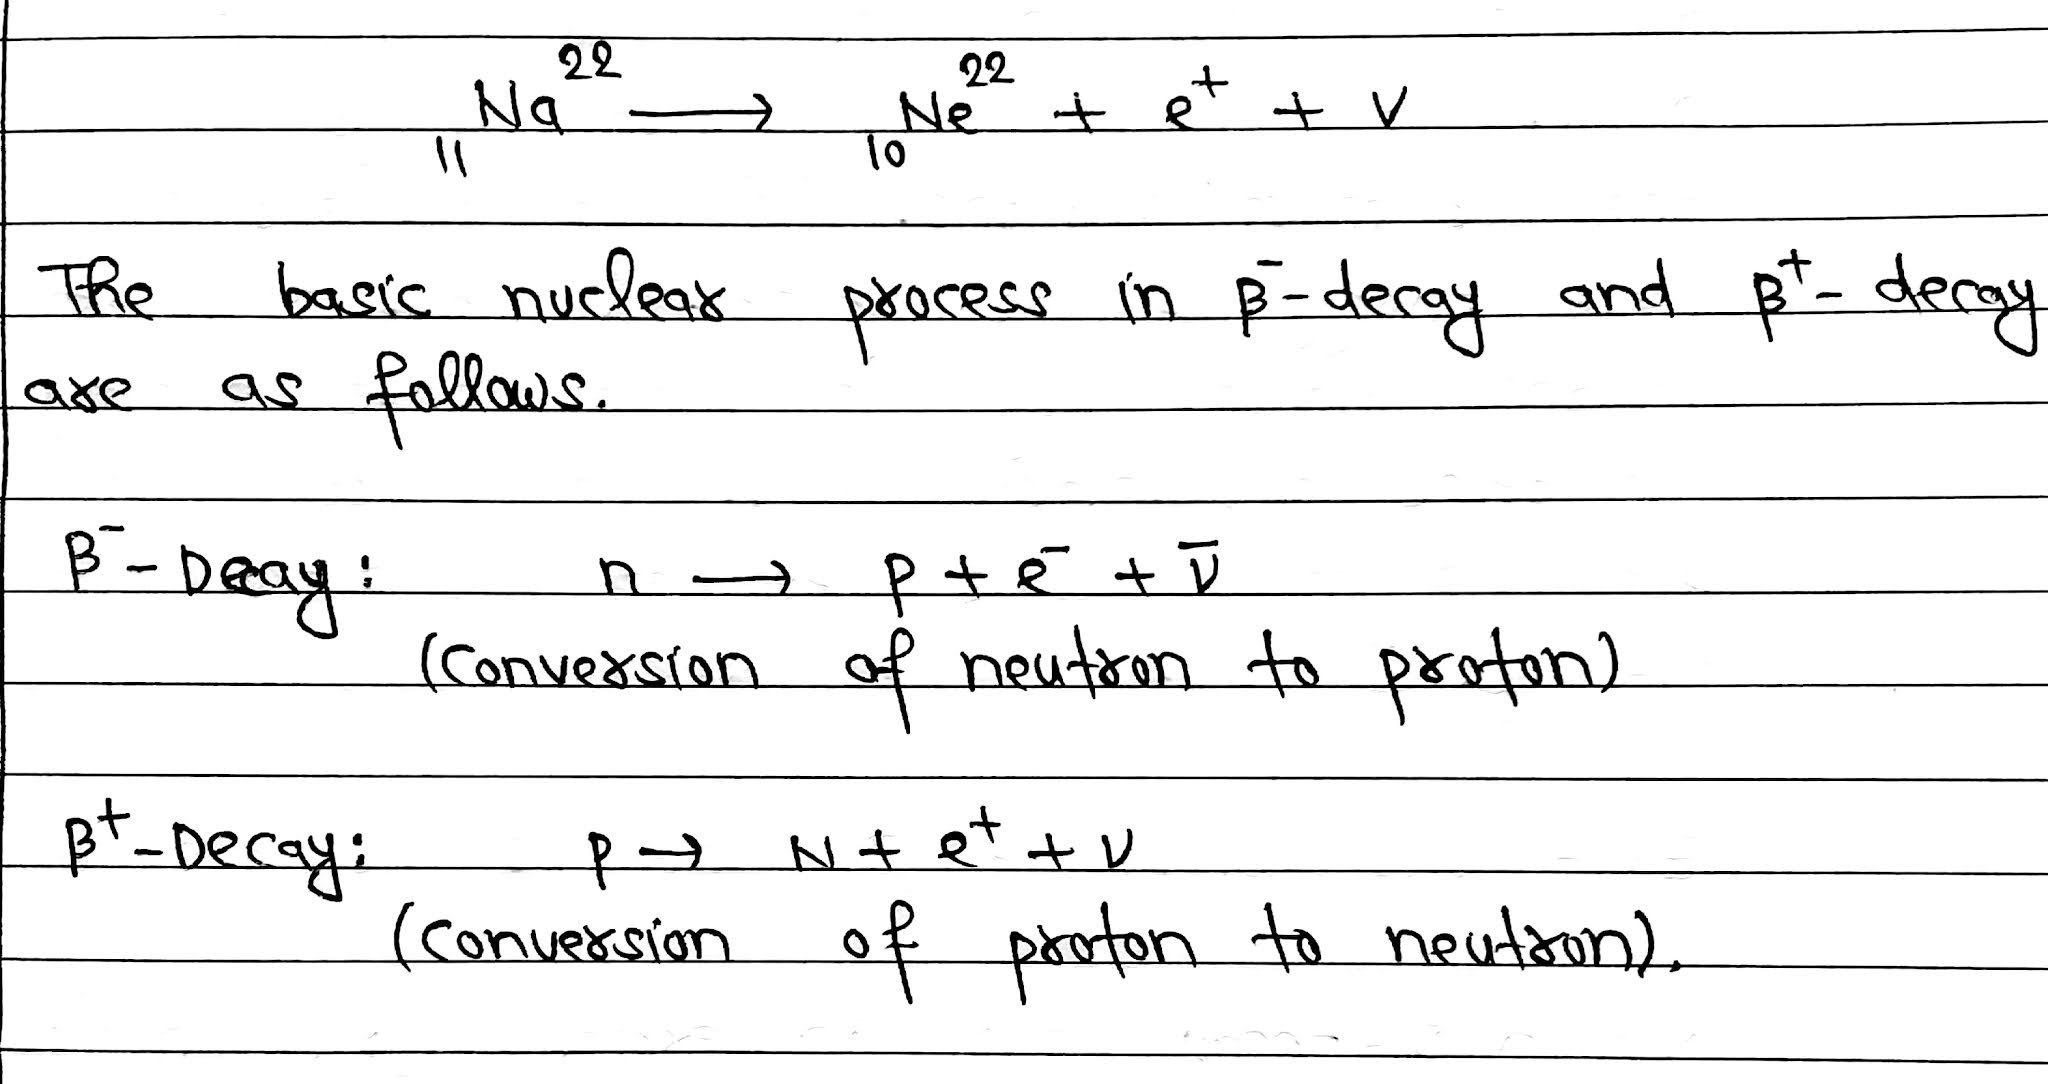 ₁₁Na²² → ₁₀Ne²² + e⁺ + ν
The basic nuclear process in β⁻-decay and β⁺-decay
are as follows.
β⁻-Decay: n → p + e⁻ + ν̅
(Conversion of neutron to proton)
β⁺-Decay: p → N + e⁺ + ν
(Conversion of proton to neutron).